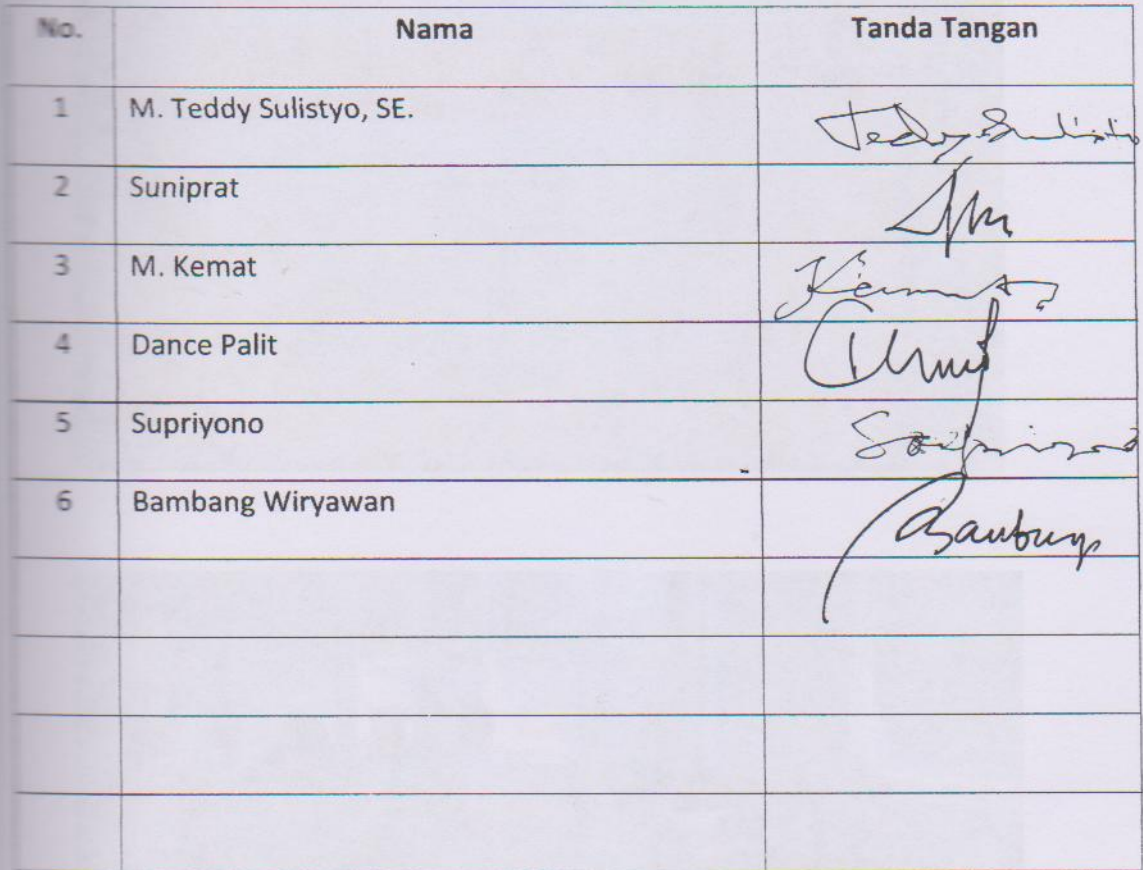 No. Nama Tanda Tangan
1 M. Teddy Sulistyo, SE. Teddy Sulistio
2 Suniprat
3 M. Kemat Kemat
4 Dance Palit
5 Supriyono
6 Bambang Wiryawan Bambang